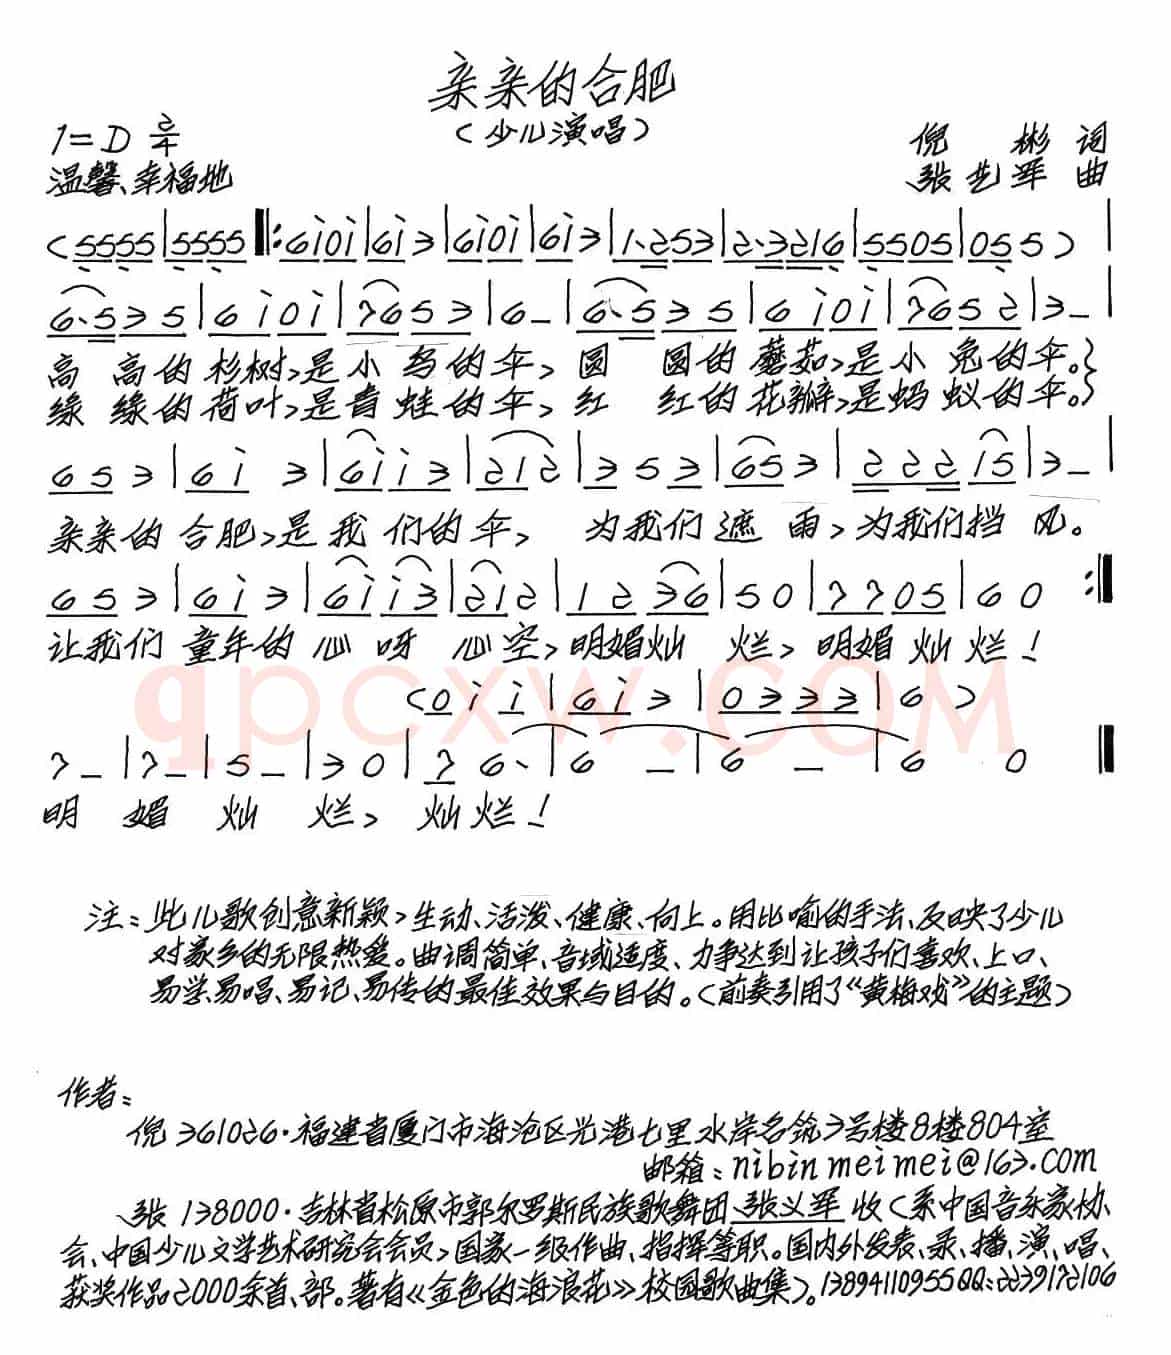 亲亲的合肥
(少儿演唱)
1=D 2/4
倪 彬 词
温馨、幸福地
张艺军 曲
(5555|5555‖:6i0i|6i3|6i0i|6i3|1·253|2·3216|5505|055)|
6·535|6i0i|7653|6-|6·535|6i0i|7652|3-|
高高的杉树,是小鸟的伞,圆圆的蘑茹,是小兔的伞。}
绿绿的荷叶,是青蛙的伞,红红的花瓣,是蚂蚁的伞。}
653|6i 3|6ii3|2i2|353|653|222i5|3-|
亲亲的合肥,是我们的伞,为我们遮雨,为我们挡风。
653|6i3|6ii3|2i2|1236|50|7705|60:‖
让我们童年的心呀心空,明媚灿烂,明媚灿烂!
(0ii|6i3|0333|6)
7-|7-|5-|30|76·|6-|6-|60‖
明媚灿烂,灿烂!
qpcxw.COM
注:此儿歌创意新颖,生动、活泼、健康、向上。用比喻的手法、反映了少儿
对家乡的无限热爱。曲调简单、音域适度、力争达到让孩子们喜欢、上口、
易学、易唱、易记、易传的最佳效果与目的。(前奏引用了《黄梅戏》的主题)
作者:
倪361026·福建省厦门市海沧区兴港七里水岸名筑3号楼8楼804室
邮箱:nibinmeimei@163.com
张138000·吉林省松原市郭尔罗斯民族歌舞团张义军 收(系中国音乐家协
会、中国少儿文学艺术研究会会员,国家一级作曲、指挥等职。国内外发表、录、播、演、唱、
获奖作品2000余首、部。著有《金色的海浪花》校园歌曲集)。13894110955QQ:2239172106